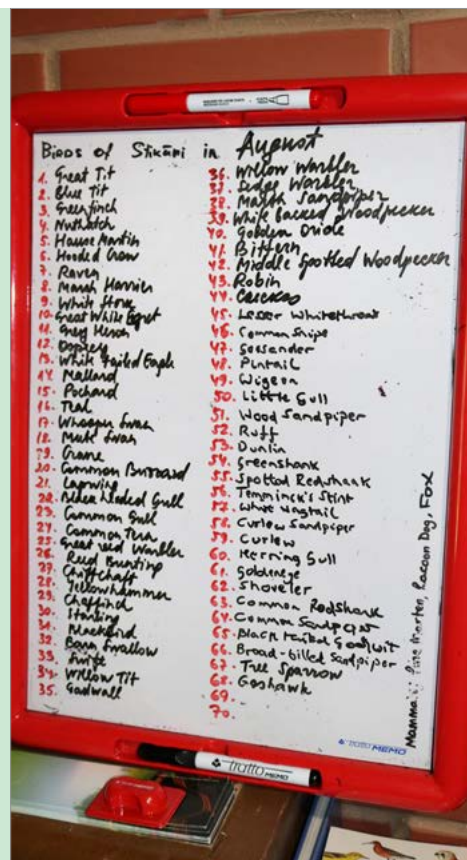 Birds of Stikāni in August
1. Great Tit
2. Blue Tit
3. Greenfinch
4. Nuthatch
5. House Martin
6. Hooded Crow
7. Raven
8. Marsh Harrier
9. White Stork
10. Great White Egret
11. Grey Heron
12. Osprey
13. White Tailed Eagle
14. Mallard
15. Pochard
16. Teal
17. Whooper Swan
18. Mute Swan
19. Crane
20. Common Buzzard
21. Lapwing
22. Black Headed Gull
23. Common Gull
24. Common Tern
25. Great reed Warbler
26. Reed Bunting
27. Chiffchaff
28. Yellowhammer
29. Chaffinch
30. Starling
31. Blackbird
32. Barn Swallow
33. Swift
34. Willow Tit
35. Gadwall
36. Willow Warbler
37. Sedge Warbler
38. Marsh Sandpiper
39. White Backed Woodpecker
40. Golden Oriole
41. Bittern
42. Middle Spotted Woodpecker
43. Robin
44. Cuckoo
45. Lesser Whitethroat
46. Common Snipe
47. Goosander
48. Pintail
49. Wigeon
50. Little Gull
51. Wood Sandpiper
52. Ruff
53. Dunlin
54. Greenshank
55. Spotted Redshank
56. Temminck's Stint
57. White Wagtail
58. Curlew Sandpiper
59. Curlew
60. Herring Gull
61. Goldeneye
62. Shoveler
63. Common Redshank
64. Common Sandpiper
65. Black tailed Godwit
66. Broad-billed Sandpiper
67. Tree Sparrow
68. Goshawk
69.
70.
Mammals: Pine Marten, Racoon Dog, Fox
tratto MEMO
tratto MEMO